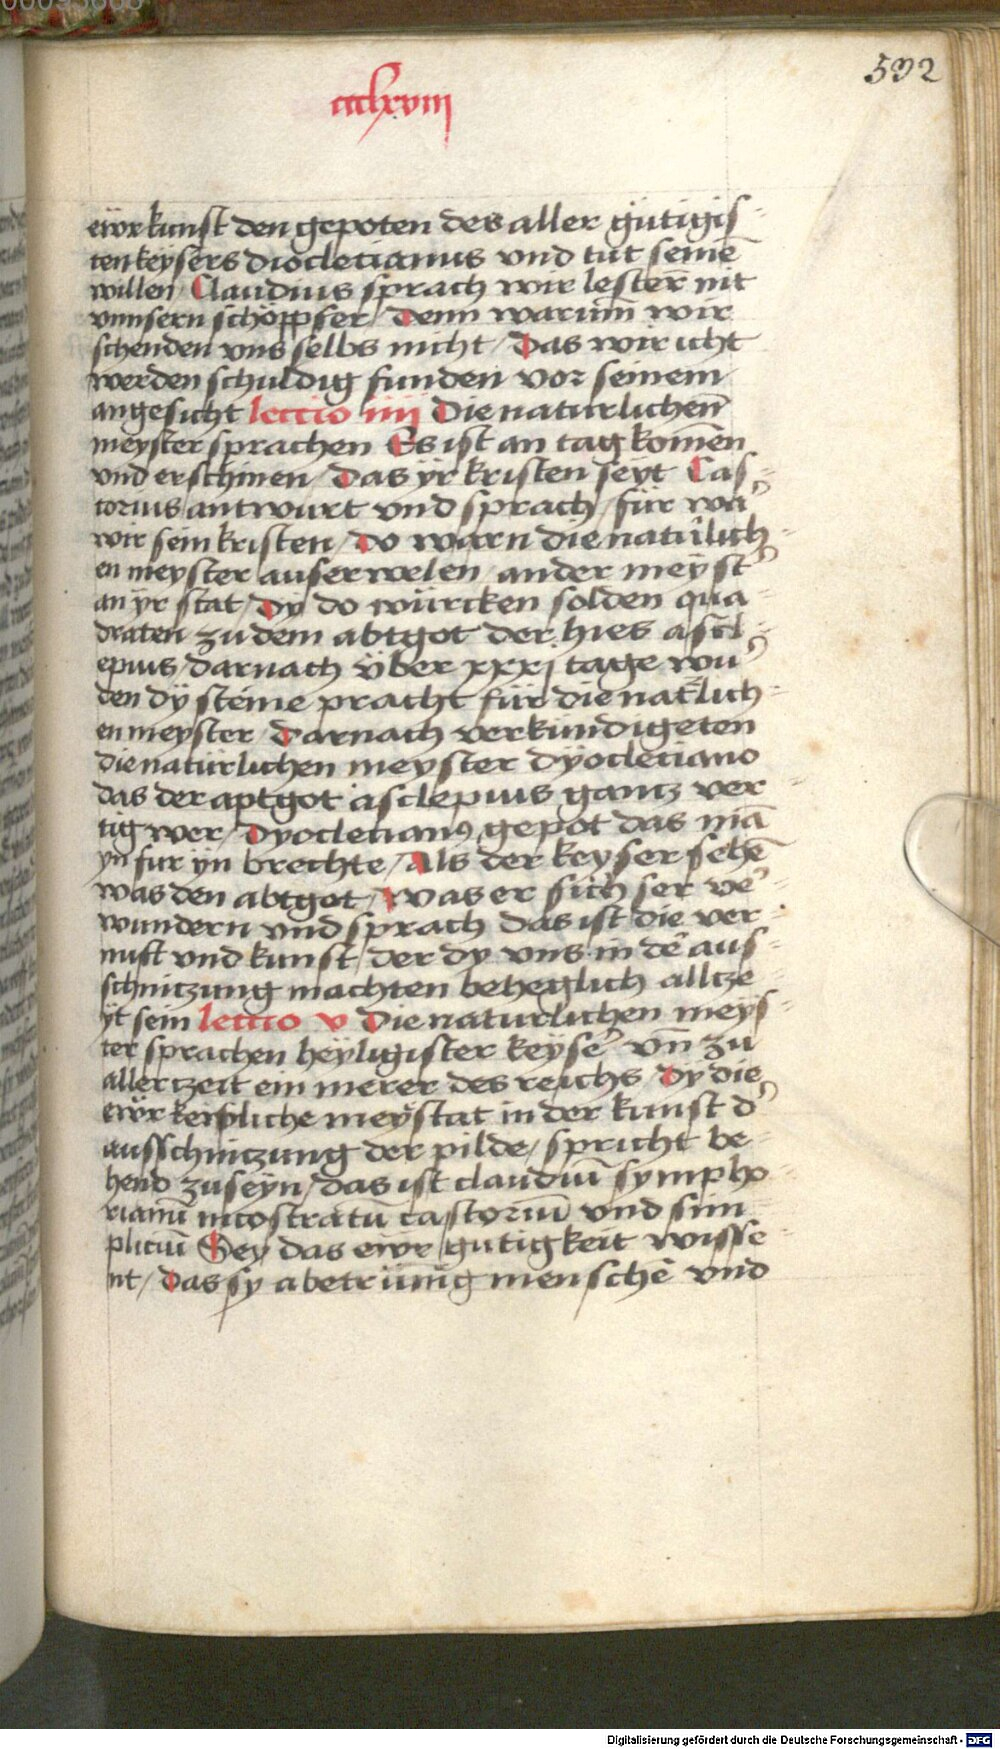 00093606
532
ccclxviii
ewr kunst den gepoten des aller gütigis-
ten keÿsers dioclecianus vnd tüt seinē
willen / Claudius sprach wir lestern nit
vnnsern schöppfer / Denn warüm̄ wir
schenden vns selbs nicht / Das wir icht
werden schuldig funden vor seinem
angesicht lectio iiij Die naturlichen̄
meyster sprachen Es ist an tag kom̄en
vnd erschinen / Das ÿr kristen seÿt Cas-
torius antwurt vnd sprach / für war
wir sein kristen / do warn die natürlich-
en meyster auserwelen / ander meÿster
an ÿr stat / Dy do würcken solden qua-
draten zu dem abtgot der hies ascl-
epius / darnach über xxxj tage wur
den dÿ steine pracht für die natürlich-
en meyster / Darnach verkündigeten
die natürlichen meyster dÿocleciano
das der aptgot asclepius gantz ver-
tig wer / Dyoclecianꝰ gepot das mā
yn fur ÿn brechte / Als der keyser sehē
was den abtgot / was er sich ser ver-
wundern vnd sprach das ist die ver-
nust vnd kunst / der dy vns in de aus-
schniczung machten beheglich allcze-
ÿt sein lectio v Die naturlichen meÿs-
ter sprachen heÿligister keÿser vn̄ zu
aller tzeit ein merer des reichs Dy die
ewr keisserliche meÿstat in der kunst der
ausschniczung der pilde / spricht be-
hend zu seÿn / das ist claudiū sympho-
rianū nicostratū castoriū vnd sim-
pliciū Sey das ewr gutigkeit wisse-
nt / Das sy abetrünig menschē vnd
Digitalisierung gefördert durch die Deutsche Forschungsgemeinschaft - DFG